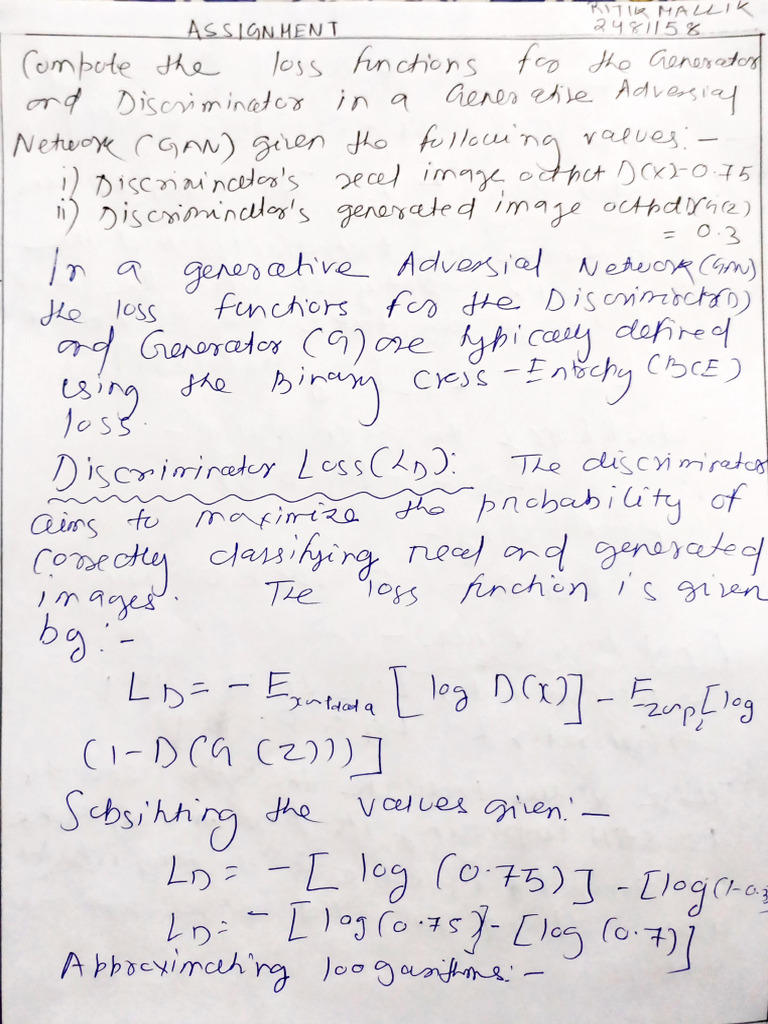 RITIK MALLIK
ASSIGNMENT 2481158
Compute the loss functions for the Generator
and Discriminator in a Generative Adversial
Network (GAN) given the following values:-
i) Discriminator's real image output D(x)=0.75
ii) Discriminator's generated image output D(G(z))
= 0.3
In a generative Adversial Network (GAN)
the loss functions for the Discriminator(D)
and Generator (G) are typically defined
using the Binary Cross-Entropy (BCE)
loss.
Discriminator Loss (LD): The discriminator
aims to maximize the probability of
correctly classifying real and generated
images. The loss function is given
by:-
LD = - Ex~Pdata [log D(x)] - Ez~Pz [log
(1-D(G(z)))]
Substituting the values given:-
LD = -[log (0.75)] - [log(1-0.3
LD = -[log(0.75)] - [log (0.7)]
Approximating loogarithms:-